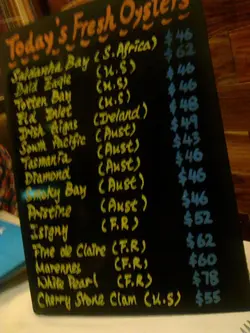 Today's Fresh Oysters
Saldanha Bay (S.Africa) $46
Bald Eagle (U.S) $62
Totten Bay (U.S) $46
Eld Inlet (U.S) $46
Irish Rigus (Ireland) $48
South Pacific (Aust) $49
Tasmania (Aust) $43
Diamond (Aust) $46
Smoky Bay (Aust) $46
Pristine (Aust) $46
Isigny (F.R) $52
Fine de Claire (F.R) $62
Marennes (F.R) $60
White Pearl (F.R) $78
Cherry Stone Clam (U.S) $55